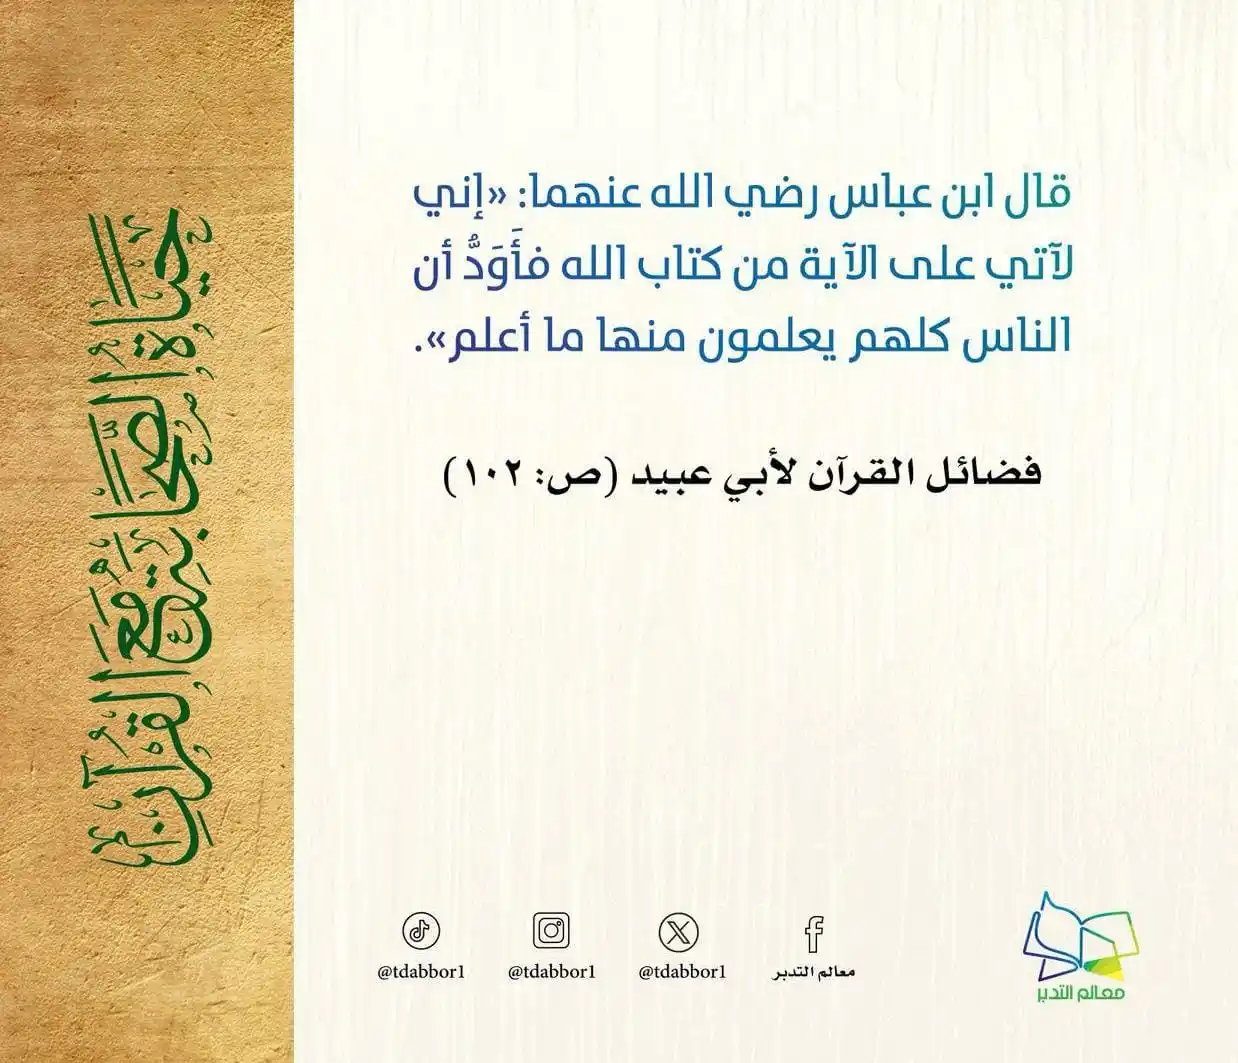 حياة الصحابة مع القرآن
قال ابن عباس رضي الله عنهما: «إني
لآتي على الآية من كتاب الله فأَوَدُّ أن
الناس كلهم يعلمون منها ما أعلم».
فضائل القرآن لأبي عبيد (ص: ١٠٢)
@tdabbor1 @tdabbor1 @tdabbor1 معالم التدبر
معالم التدبر